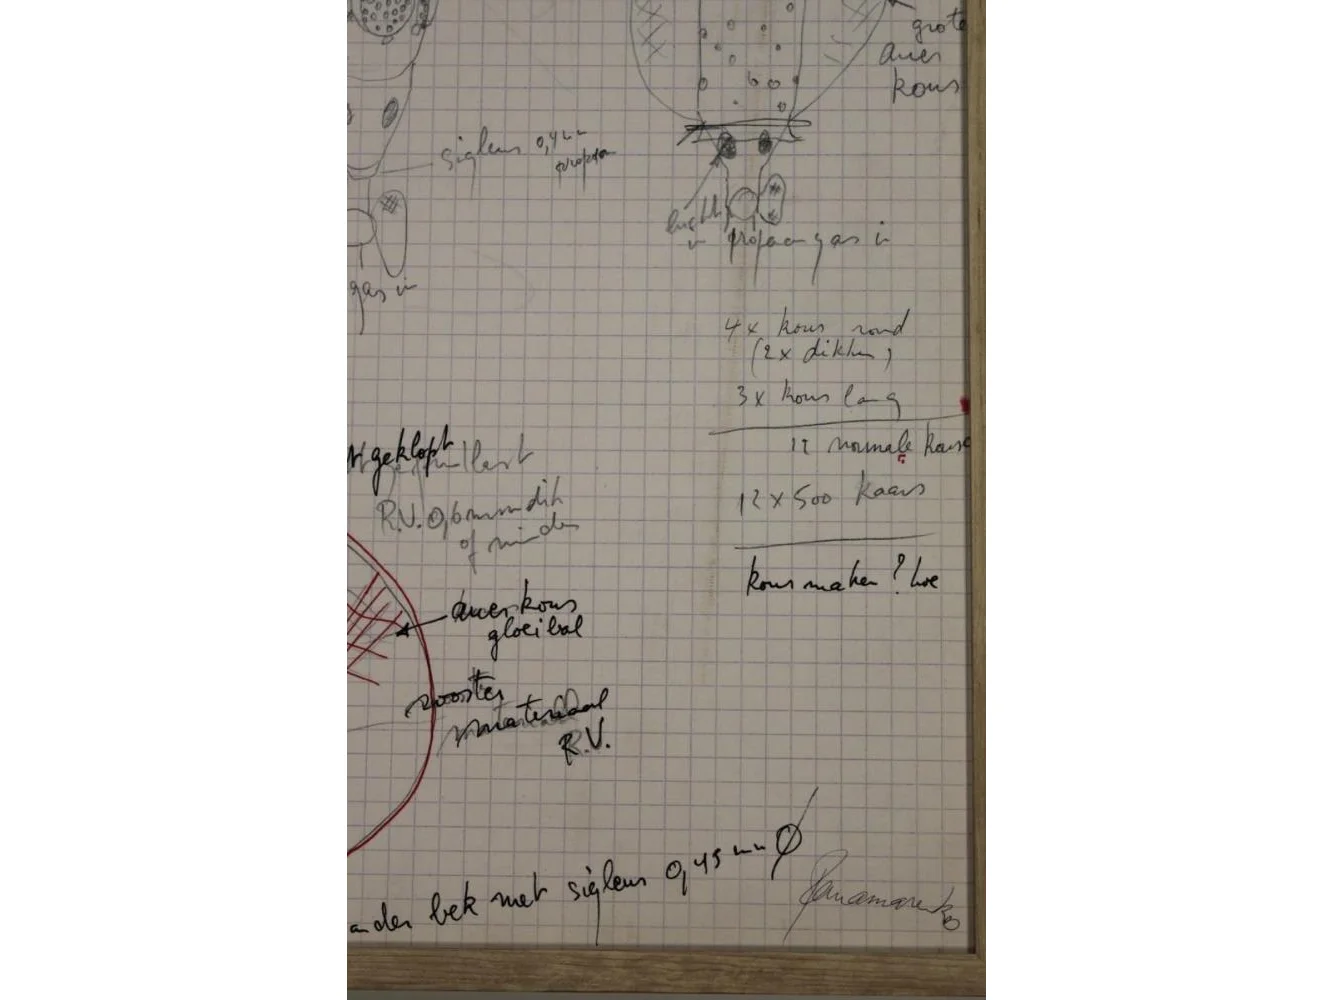 grote
auer
kous
sigleur 0,4 mm
propaan
lucht
in propaan gas in
gas in
4x kous rond
(2x dikker)
3x kous lang
12 normale kous
12 x 500 kaars
kous maken? hoe
geklopt
R.V. 0,6 mm dik
of minder
auerkous
gloeibol
rooster
materiaal
R.V.
bek met sigleur 0,45 mm Ø
Panamarenko